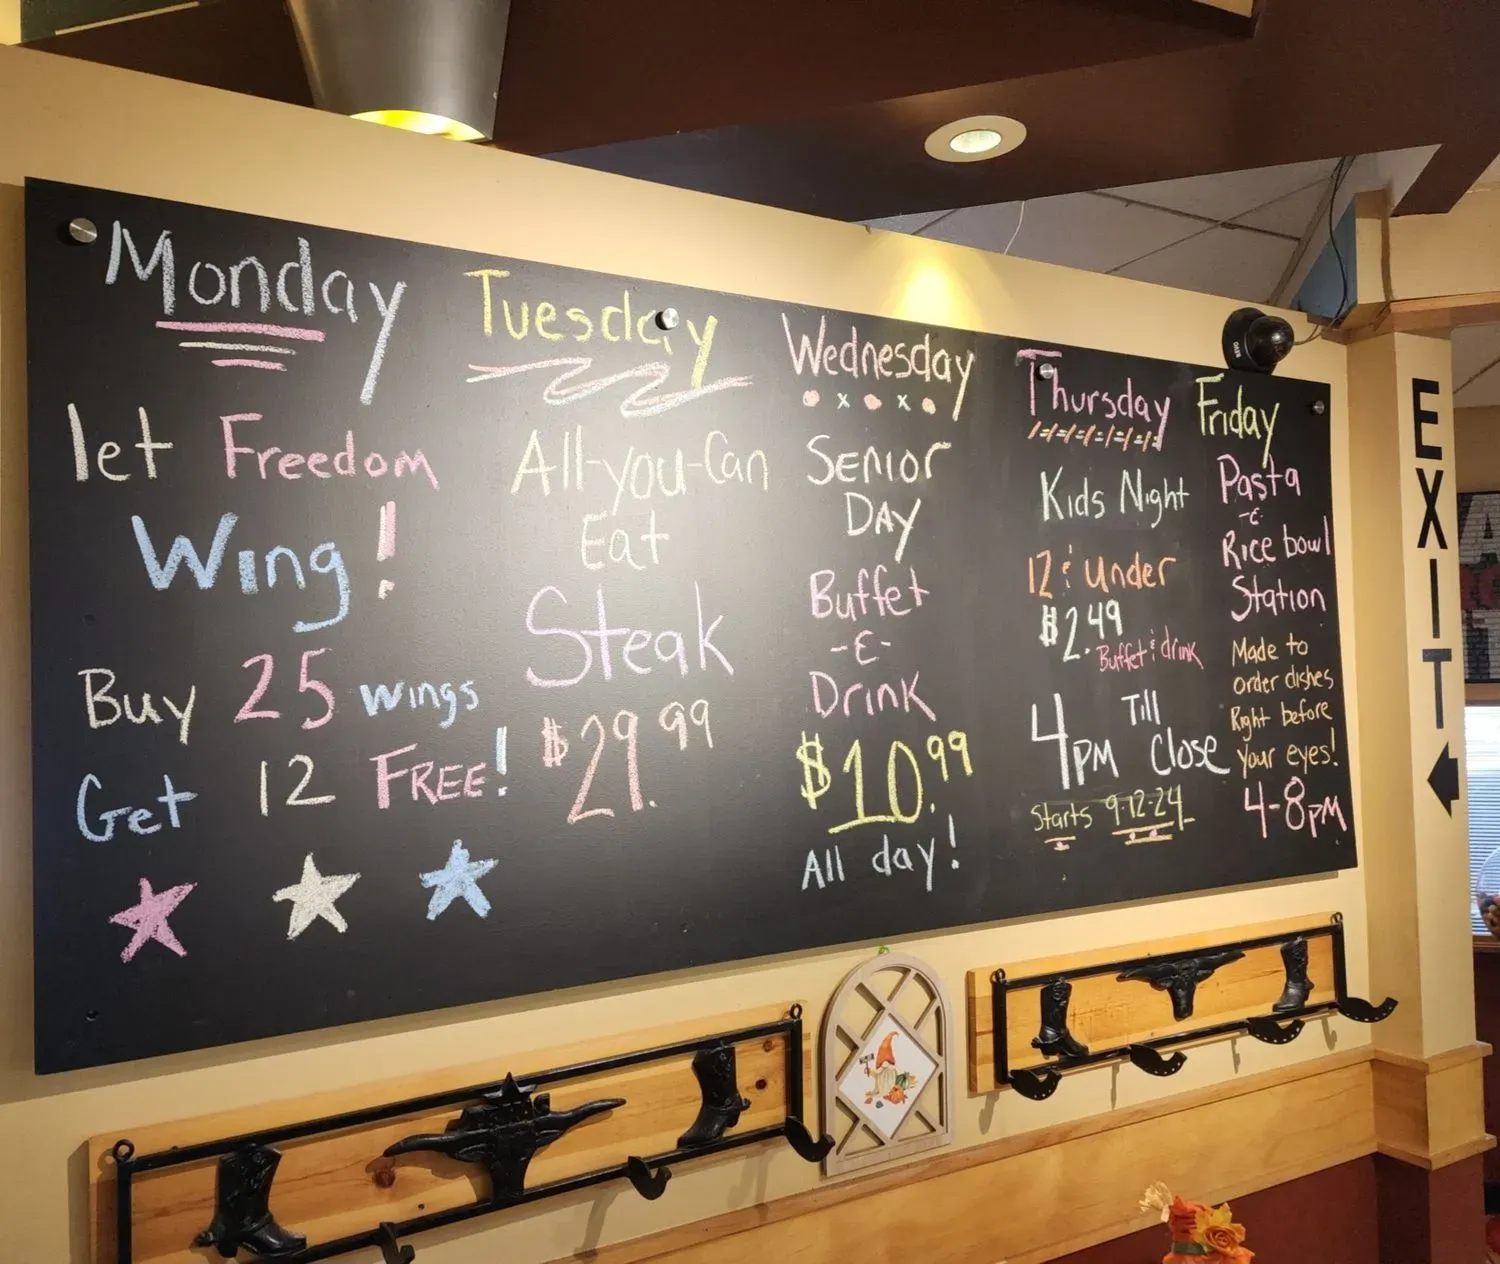 Monday
let Freedom
Wing!
Buy 25 wings
Get 12 FREE!
Tuesday
All-you-Can
Eat
Steak
$29.99
Wednesday
Senior
Day
Buffet
-&-
Drink
$10.99
All day!
Thursday
Kids Night
12 & Under
$2.49
Buffet & drink
4pm Till
Close
Starts 9-12-24
Friday
Pasta
-&-
Rice bowl
Station
Made to
order dishes
Right before
your eyes!
4-8pm
EXIT